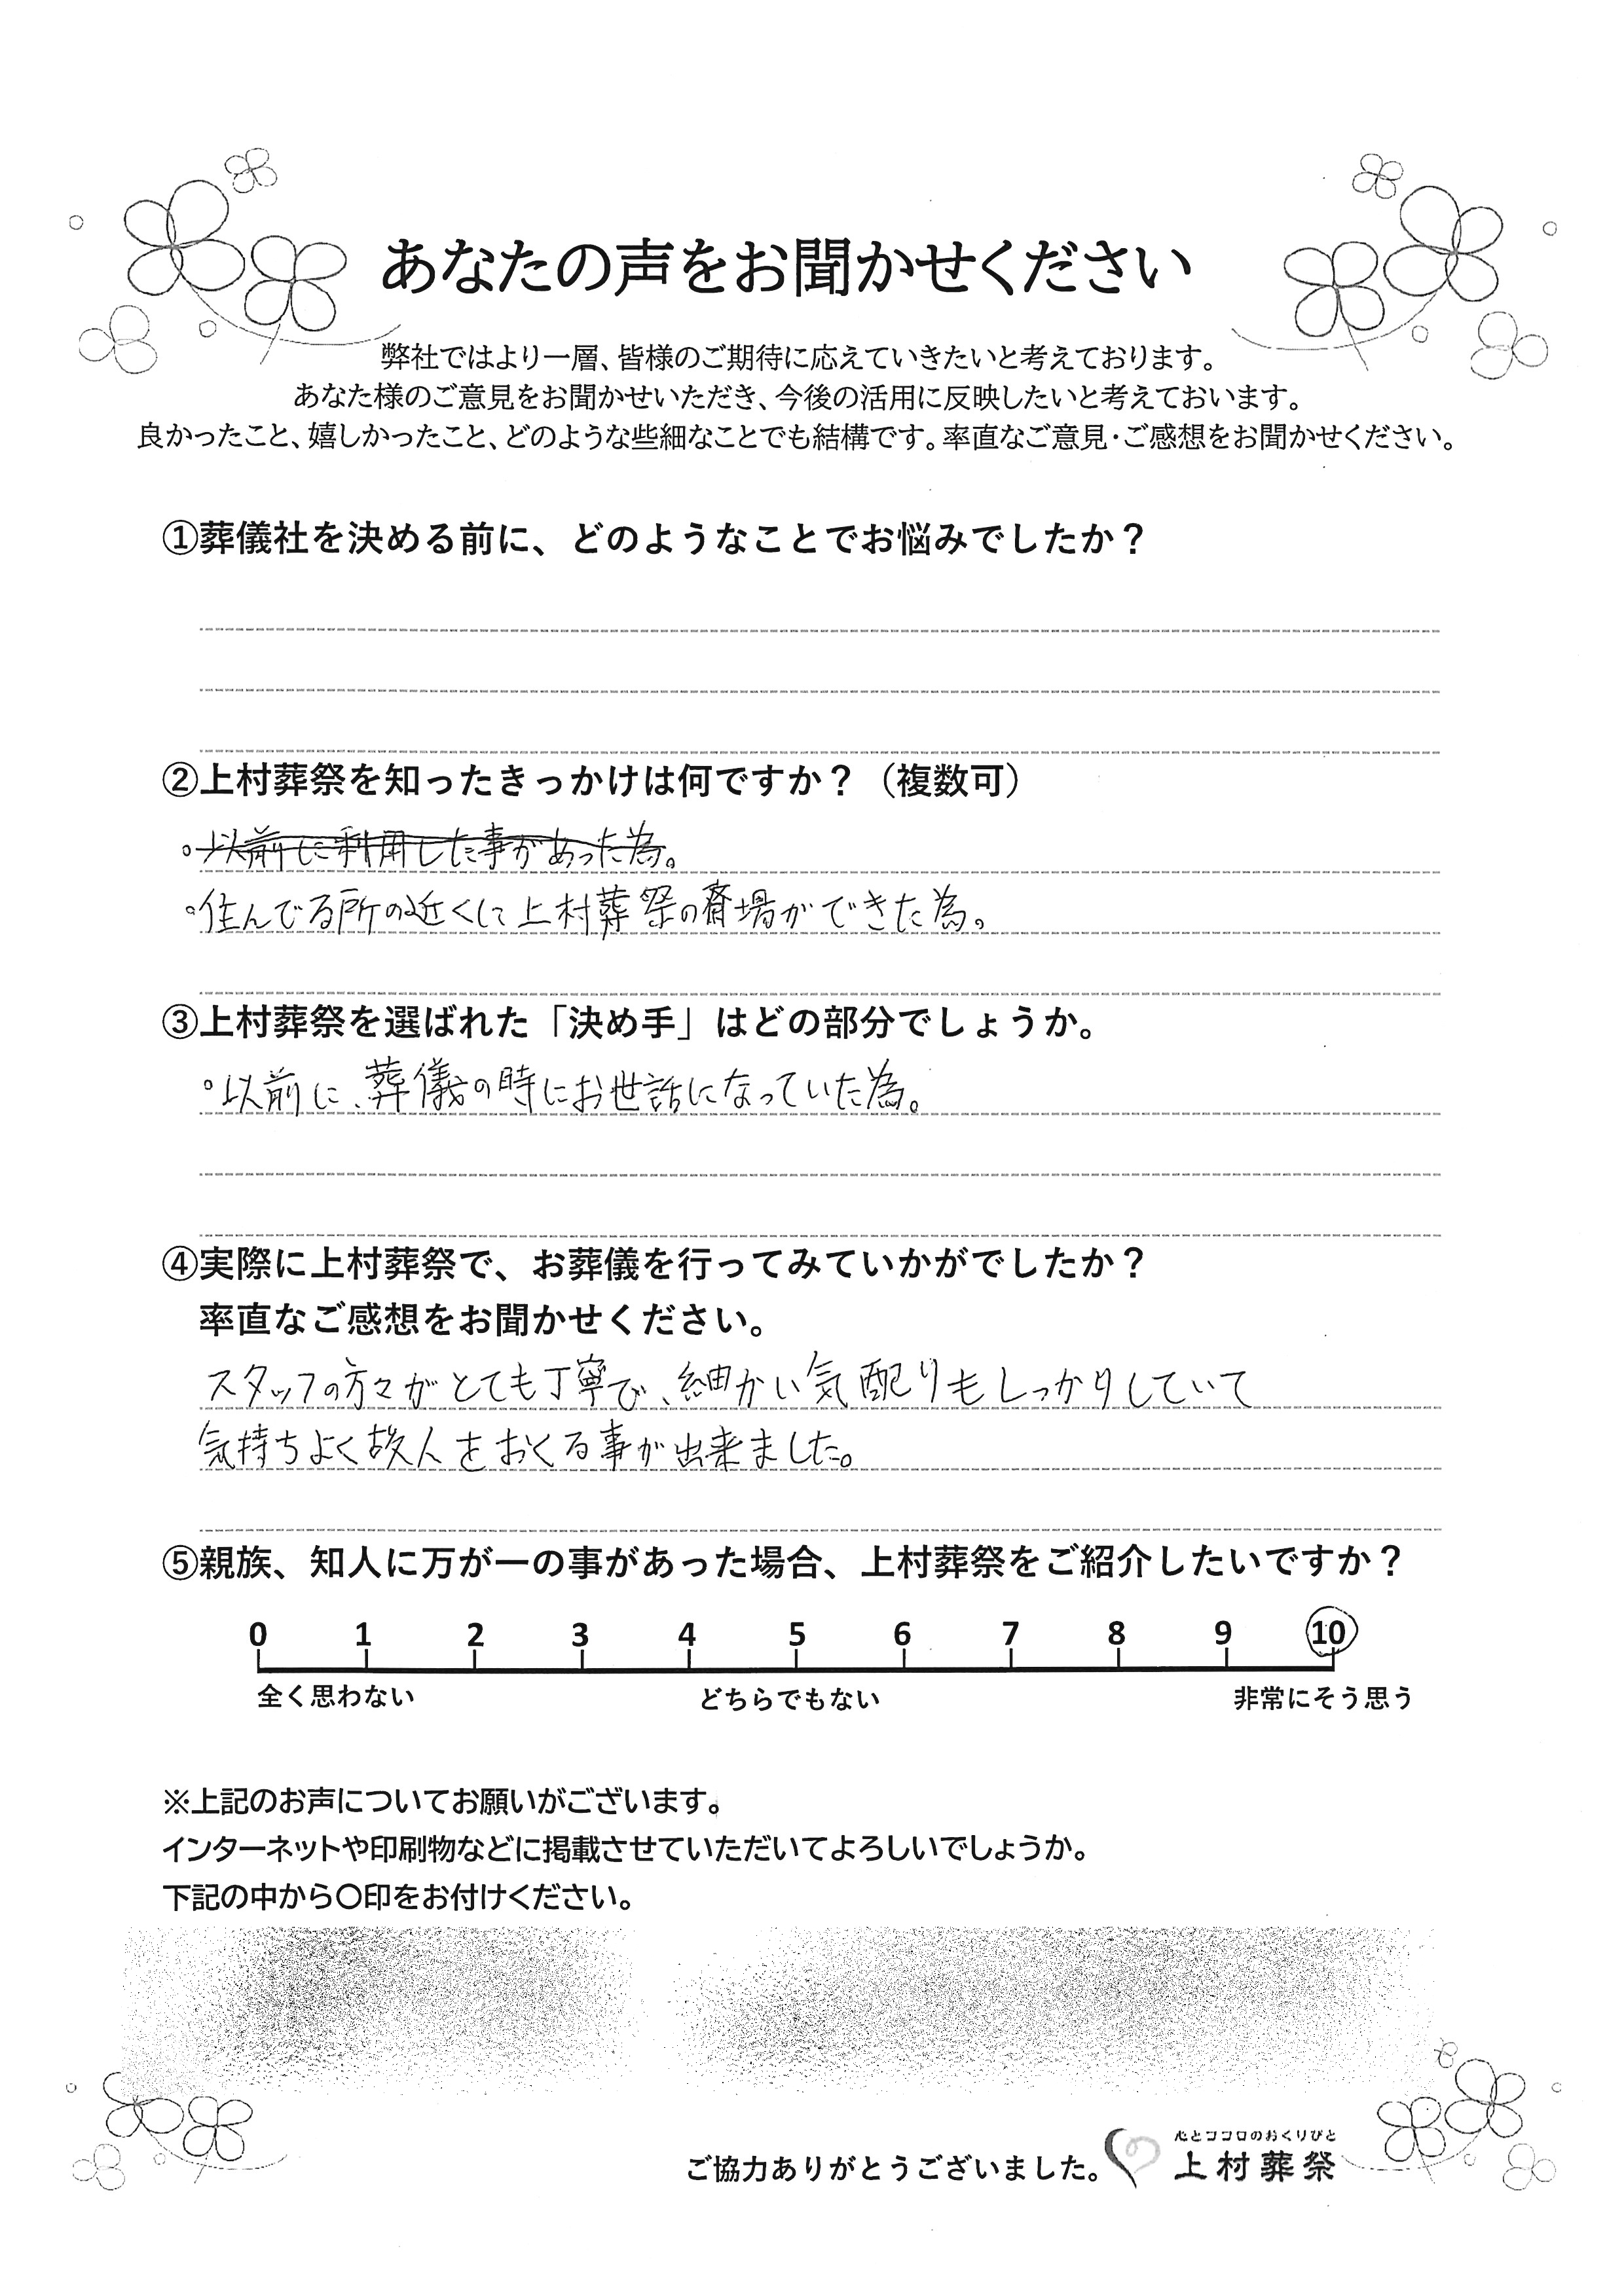 あなたの声をお聞かせください
弊社ではより一層、皆様のご期待に応えていきたいと考えております。
あなた様のご意見をお聞かせいただき、今後の活用に反映したいと考えておいます。
良かったこと、嬉しかったこと、どのような些細なことでも結構です。率直なご意見・ご感想をお聞かせください。
①葬儀社を決める前に、どのようなことでお悩みでしたか？
②上村葬祭を知ったきっかけは何ですか？（複数可）
。以前に利用した事があった為。
。住んでる所の近くに上村葬祭の斎場ができた為。
③上村葬祭を選ばれた「決め手」はどの部分でしょうか。
。以前に、葬儀の時にお世話になっていた為。
④実際に上村葬祭で、お葬儀を行ってみていかがでしたか？
率直なご感想をお聞かせください。
スタッフの方々がとても丁寧で、細かい気配りもしっかりしていて
気持ちよく故人をおくる事が出来ました。
⑤親族、知人に万が一の事があった場合、上村葬祭をご紹介したいですか？
0 1 2 3 4 5 6 7 8 9 10
全く思わない どちらでもない 非常にそう思う
※上記のお声についてお願いがございます。
インターネットや印刷物などに掲載させていただいてよろしいでしょうか。
下記の中から〇印をお付けください。
心とココロのおくりびと
ご協力ありがとうございました。 上村葬祭